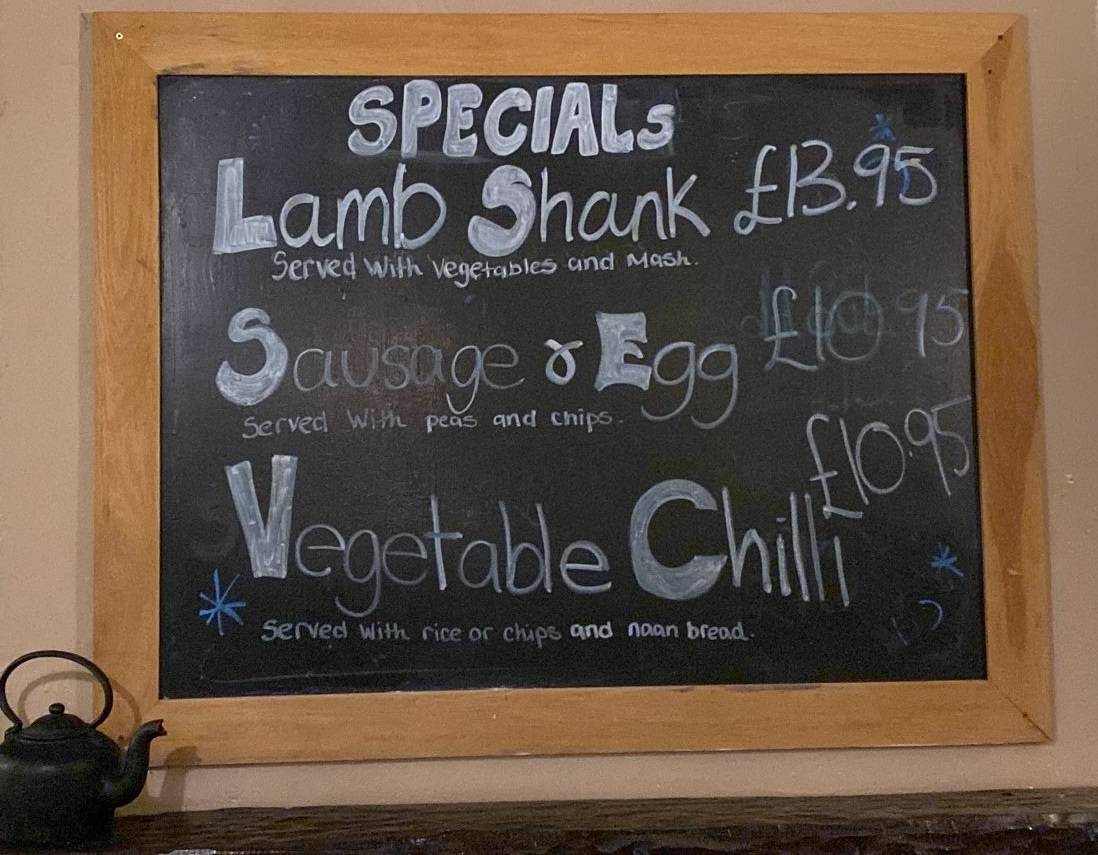 SPECIALs
Lamb Shank £13.95
Served with Vegetables and Mash.
Sausage & Egg £10.95
Served With peas and chips.
£10.95
Vegetable Chilli
Served with rice or chips and naan bread.